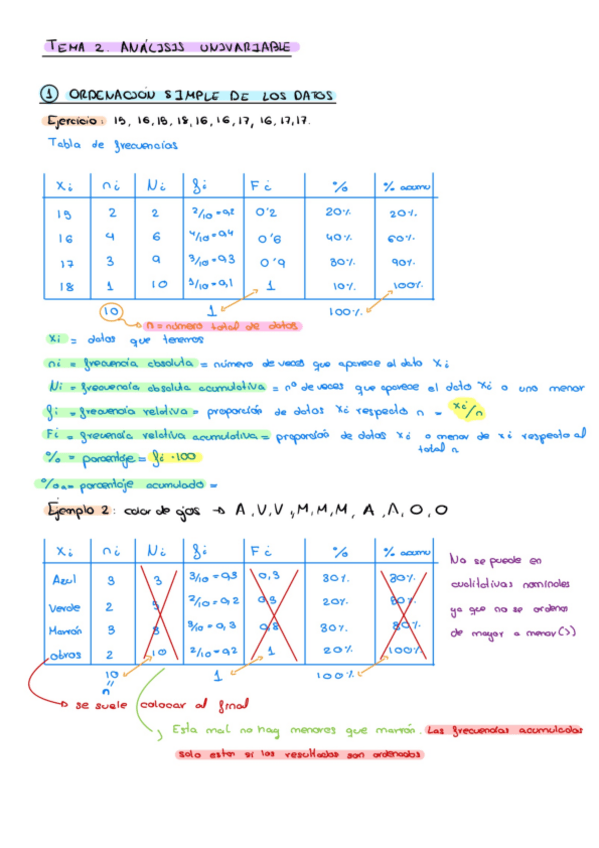 TEMA 2. ANÁLISIS UNIVARIABLE
① ORDENACIÓN SIMPLE DE LOS DATOS
Ejercicio: 15, 16, 15, 18, 16, 16, 17, 16, 17, 17.
Tabla de frecuencias
xi ni Ni fi Fi % % acumu
15 2 2 2/10 = 0,2 0'2 20% 20%
16 4 6 4/10 = 0,4 0'6 40% 60%
17 3 9 3/10 = 0,3 0'9 30% 90%
18 1 10 1/10 = 0,1 1 10% 100%
10 1 100%
n = número total de datos
xi = datos que tenemos
ni = frecuencia absoluta = número de veces que aparece el dato xi
Ni = frecuencia absoluta acumulativa = nº de veces que aparece el dato xi o uno menor
fi = frecuencia relativa = proporción de datos xi respecto n = xi/n
Fi = frecuencia relativa acumulativa = proporción de datos xi o menor de xi respecto al
total n
% = porcentaje = fi · 100
%a = porcentaje acumulado =
Ejemplo 2: color de ojos → A, V, V, M, M, M, A, A, O, O
xi ni Ni fi Fi % % acumu
Azul 3 3 3/10 = 0,3 0,3 30% 30%
Verde 2 5 2/10 = 0,2 0,5 20% 50%
Marrón 3 8 3/10 = 0,3 0,8 30% 80%
Otros 2 10 2/10 = 0,2 1 20% 100%
10 1 100%
n
No se puede en
cualitativas nominales
ya que no se ordena
de mayor a menor (>)
→ se suele colocar al final
Esta mal no hay menores que marrón. Las frecuencias acumuladas
solo estan si los resultados son ordenados